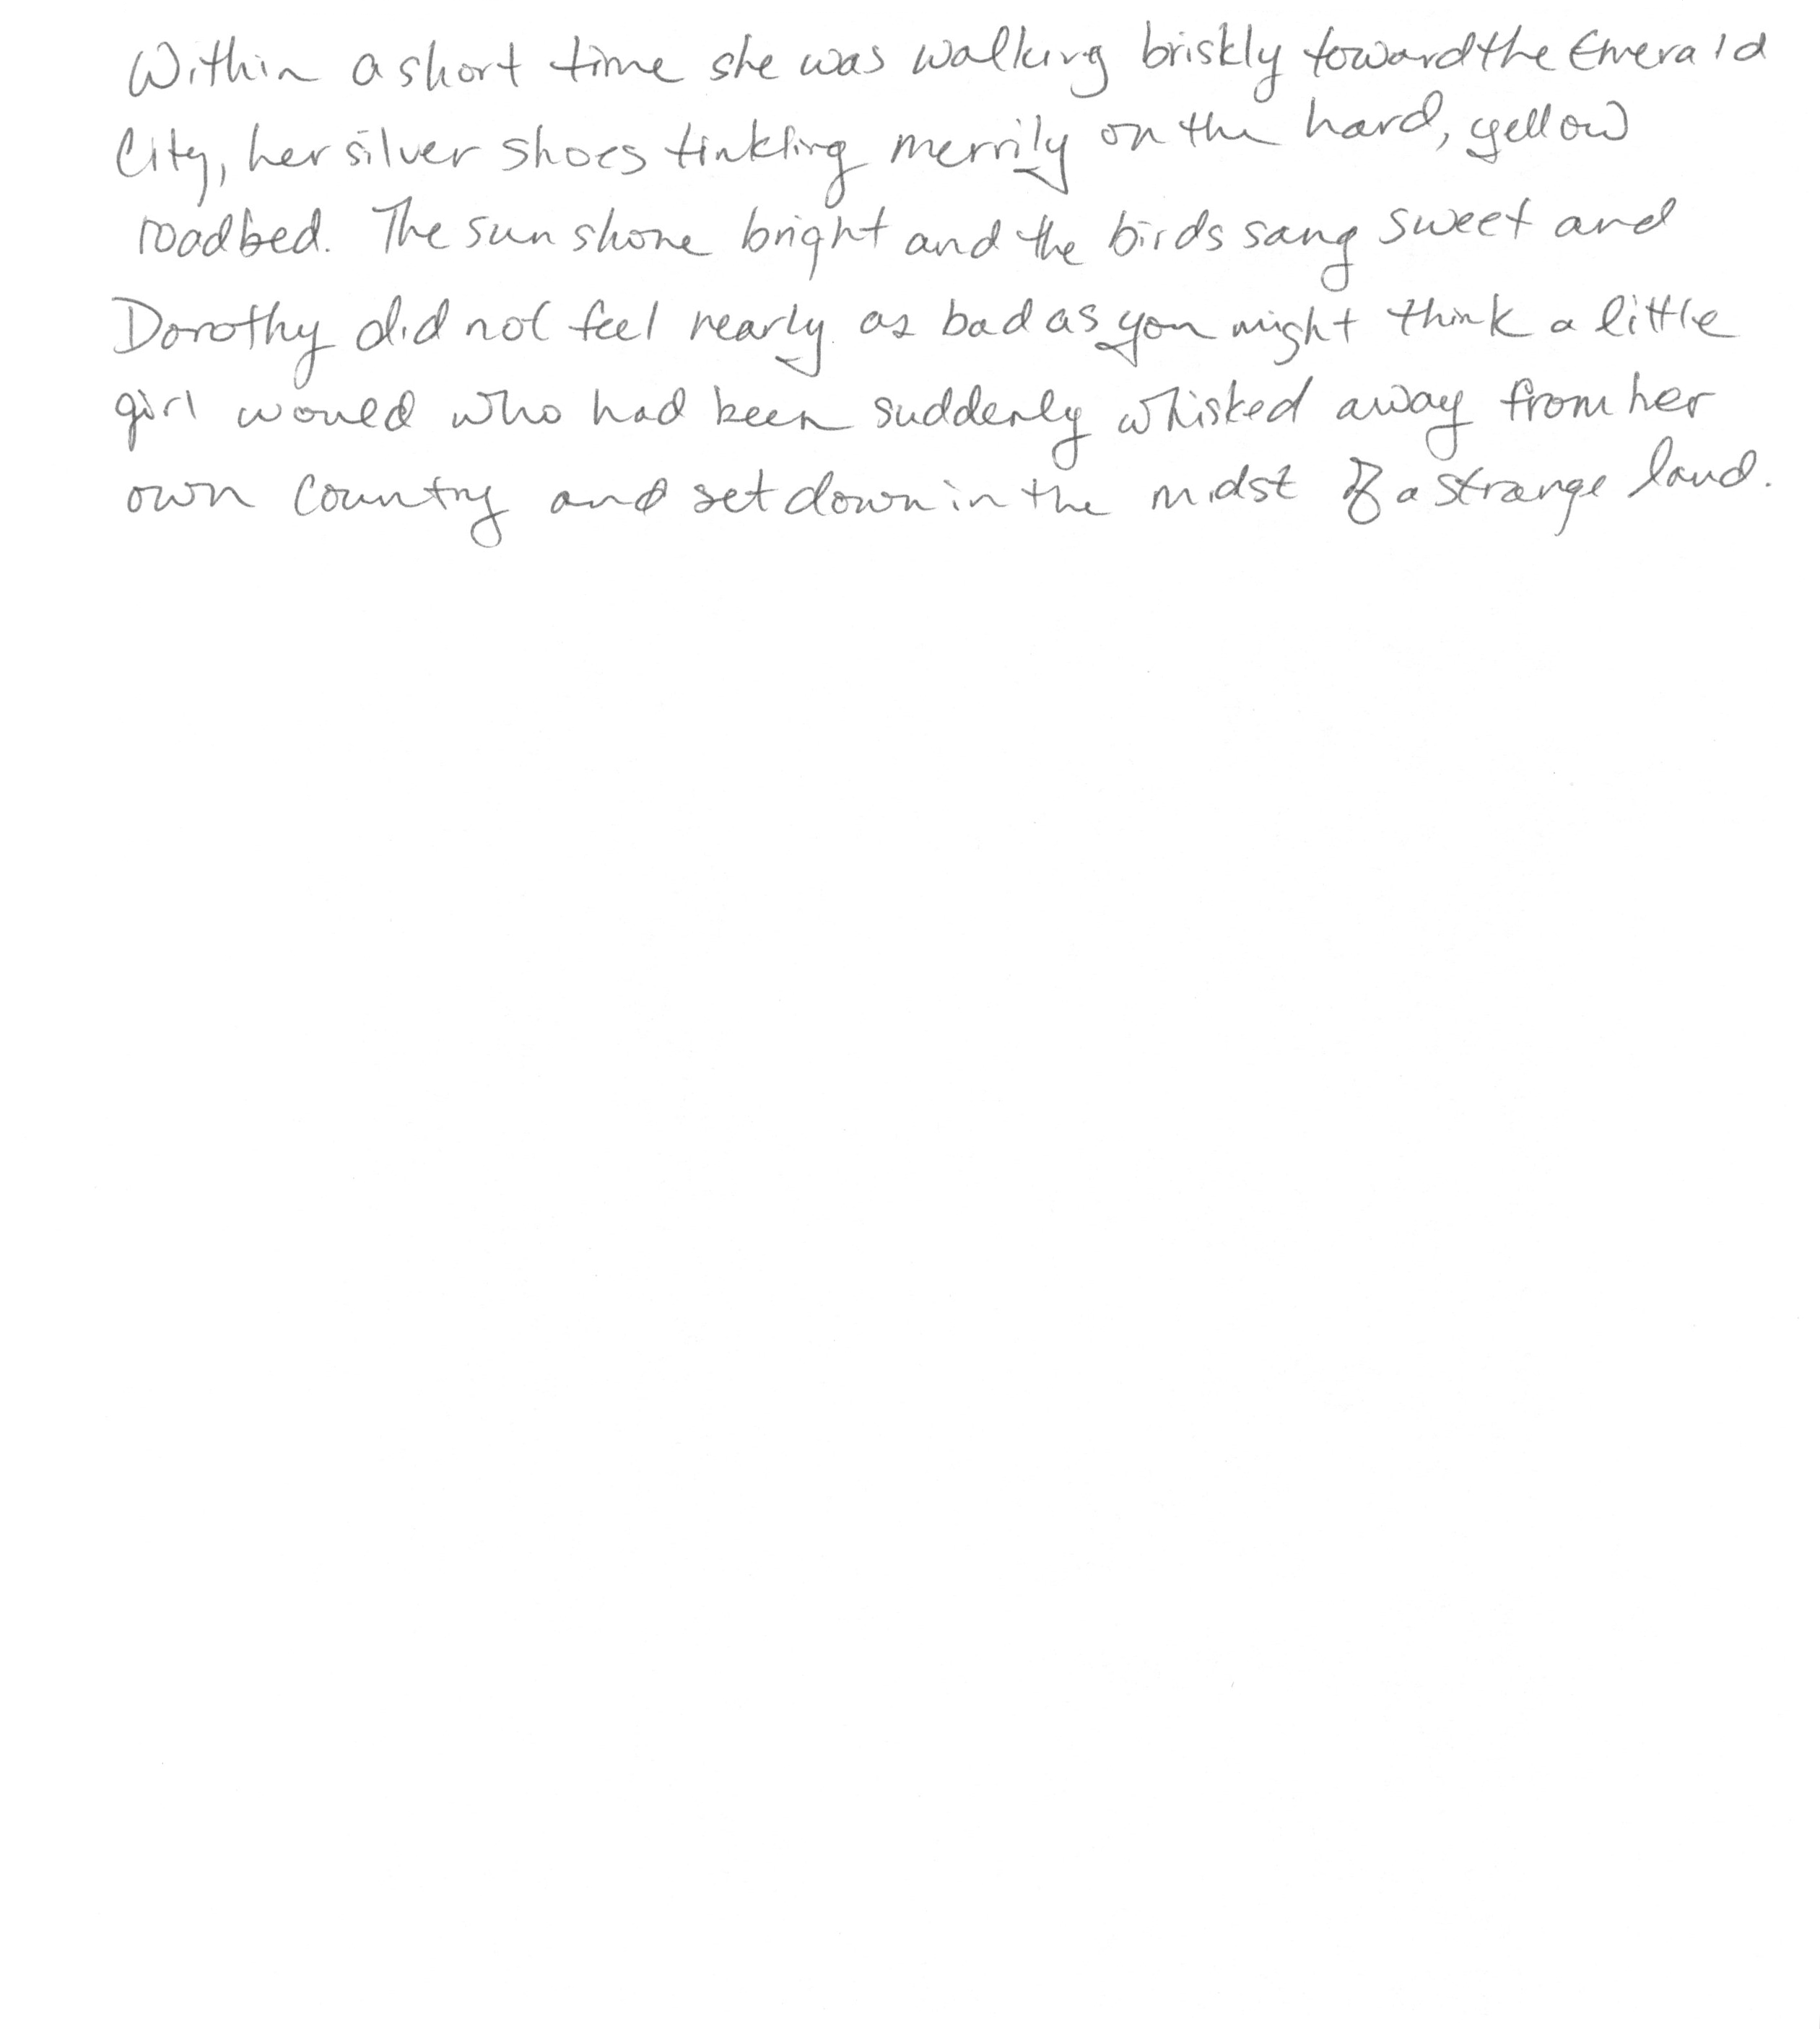 Within a short time she was walking briskly toward the Emerald
City, her silver shoes tinkling merrily on the hard, yellow
roadbed. The sun shone bright and the birds sang sweet and
Dorothy did not feel nearly as bad as you might think a little
girl would who had been suddenly whisked away from her
own country and set down in the midst of a strange land.